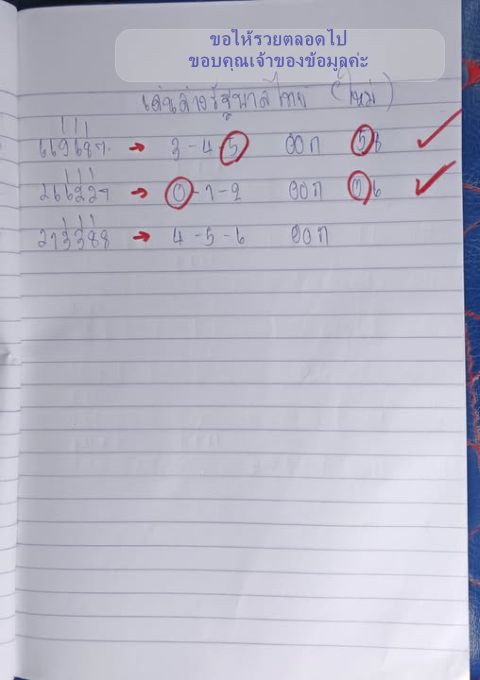 ขอให้รวยตลอดไป
ขอบคุณเจ้าของข้อมูลค่ะ
เด่นล่างรัฐบาลไทย (ใหม่)
669687 → 3-4-5 ออก 58
266227 → 0-1-2 ออก 06
273388 → 4-5-6 ออก